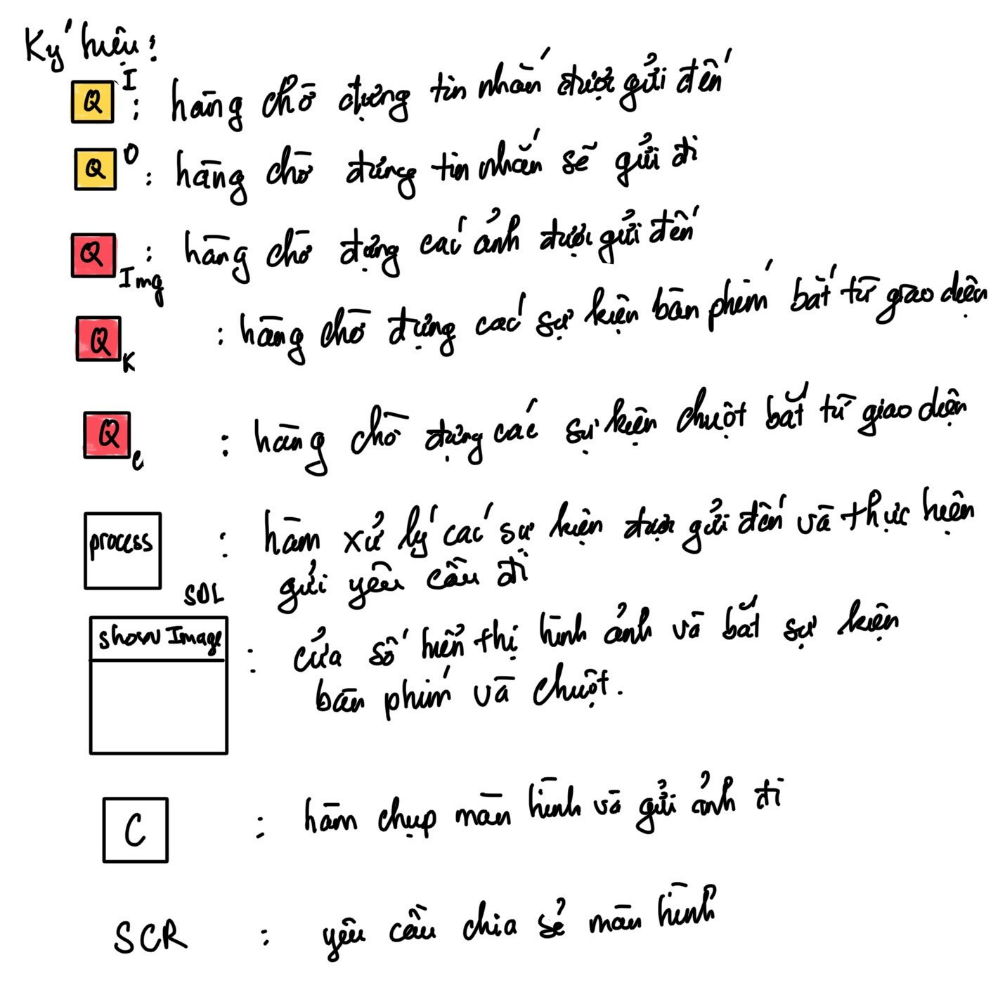 Ký hiệu:
Q I : hàng chờ đựng tin nhắn được gửi đến
Q O : hàng chờ đựng tin nhắn sẽ gửi đi
Q Img : hàng chờ đựng các ảnh được gửi đến
Q K : hàng chờ đựng các sự kiện bàn phím bắt từ giao diện
Q C : hàng chờ đựng các sự kiện chuột bắt từ giao diện
process : hàm xử lý các sự kiện được gửi đến và thực hiện
gửi yêu cầu đi
SDL
show Image : cửa sổ hiển thị hình ảnh và bắt sự kiện
bàn phím và chuột.
C : hàm chụp màn hình và gửi ảnh đi
SCR : yêu cầu chia sẻ màn hình